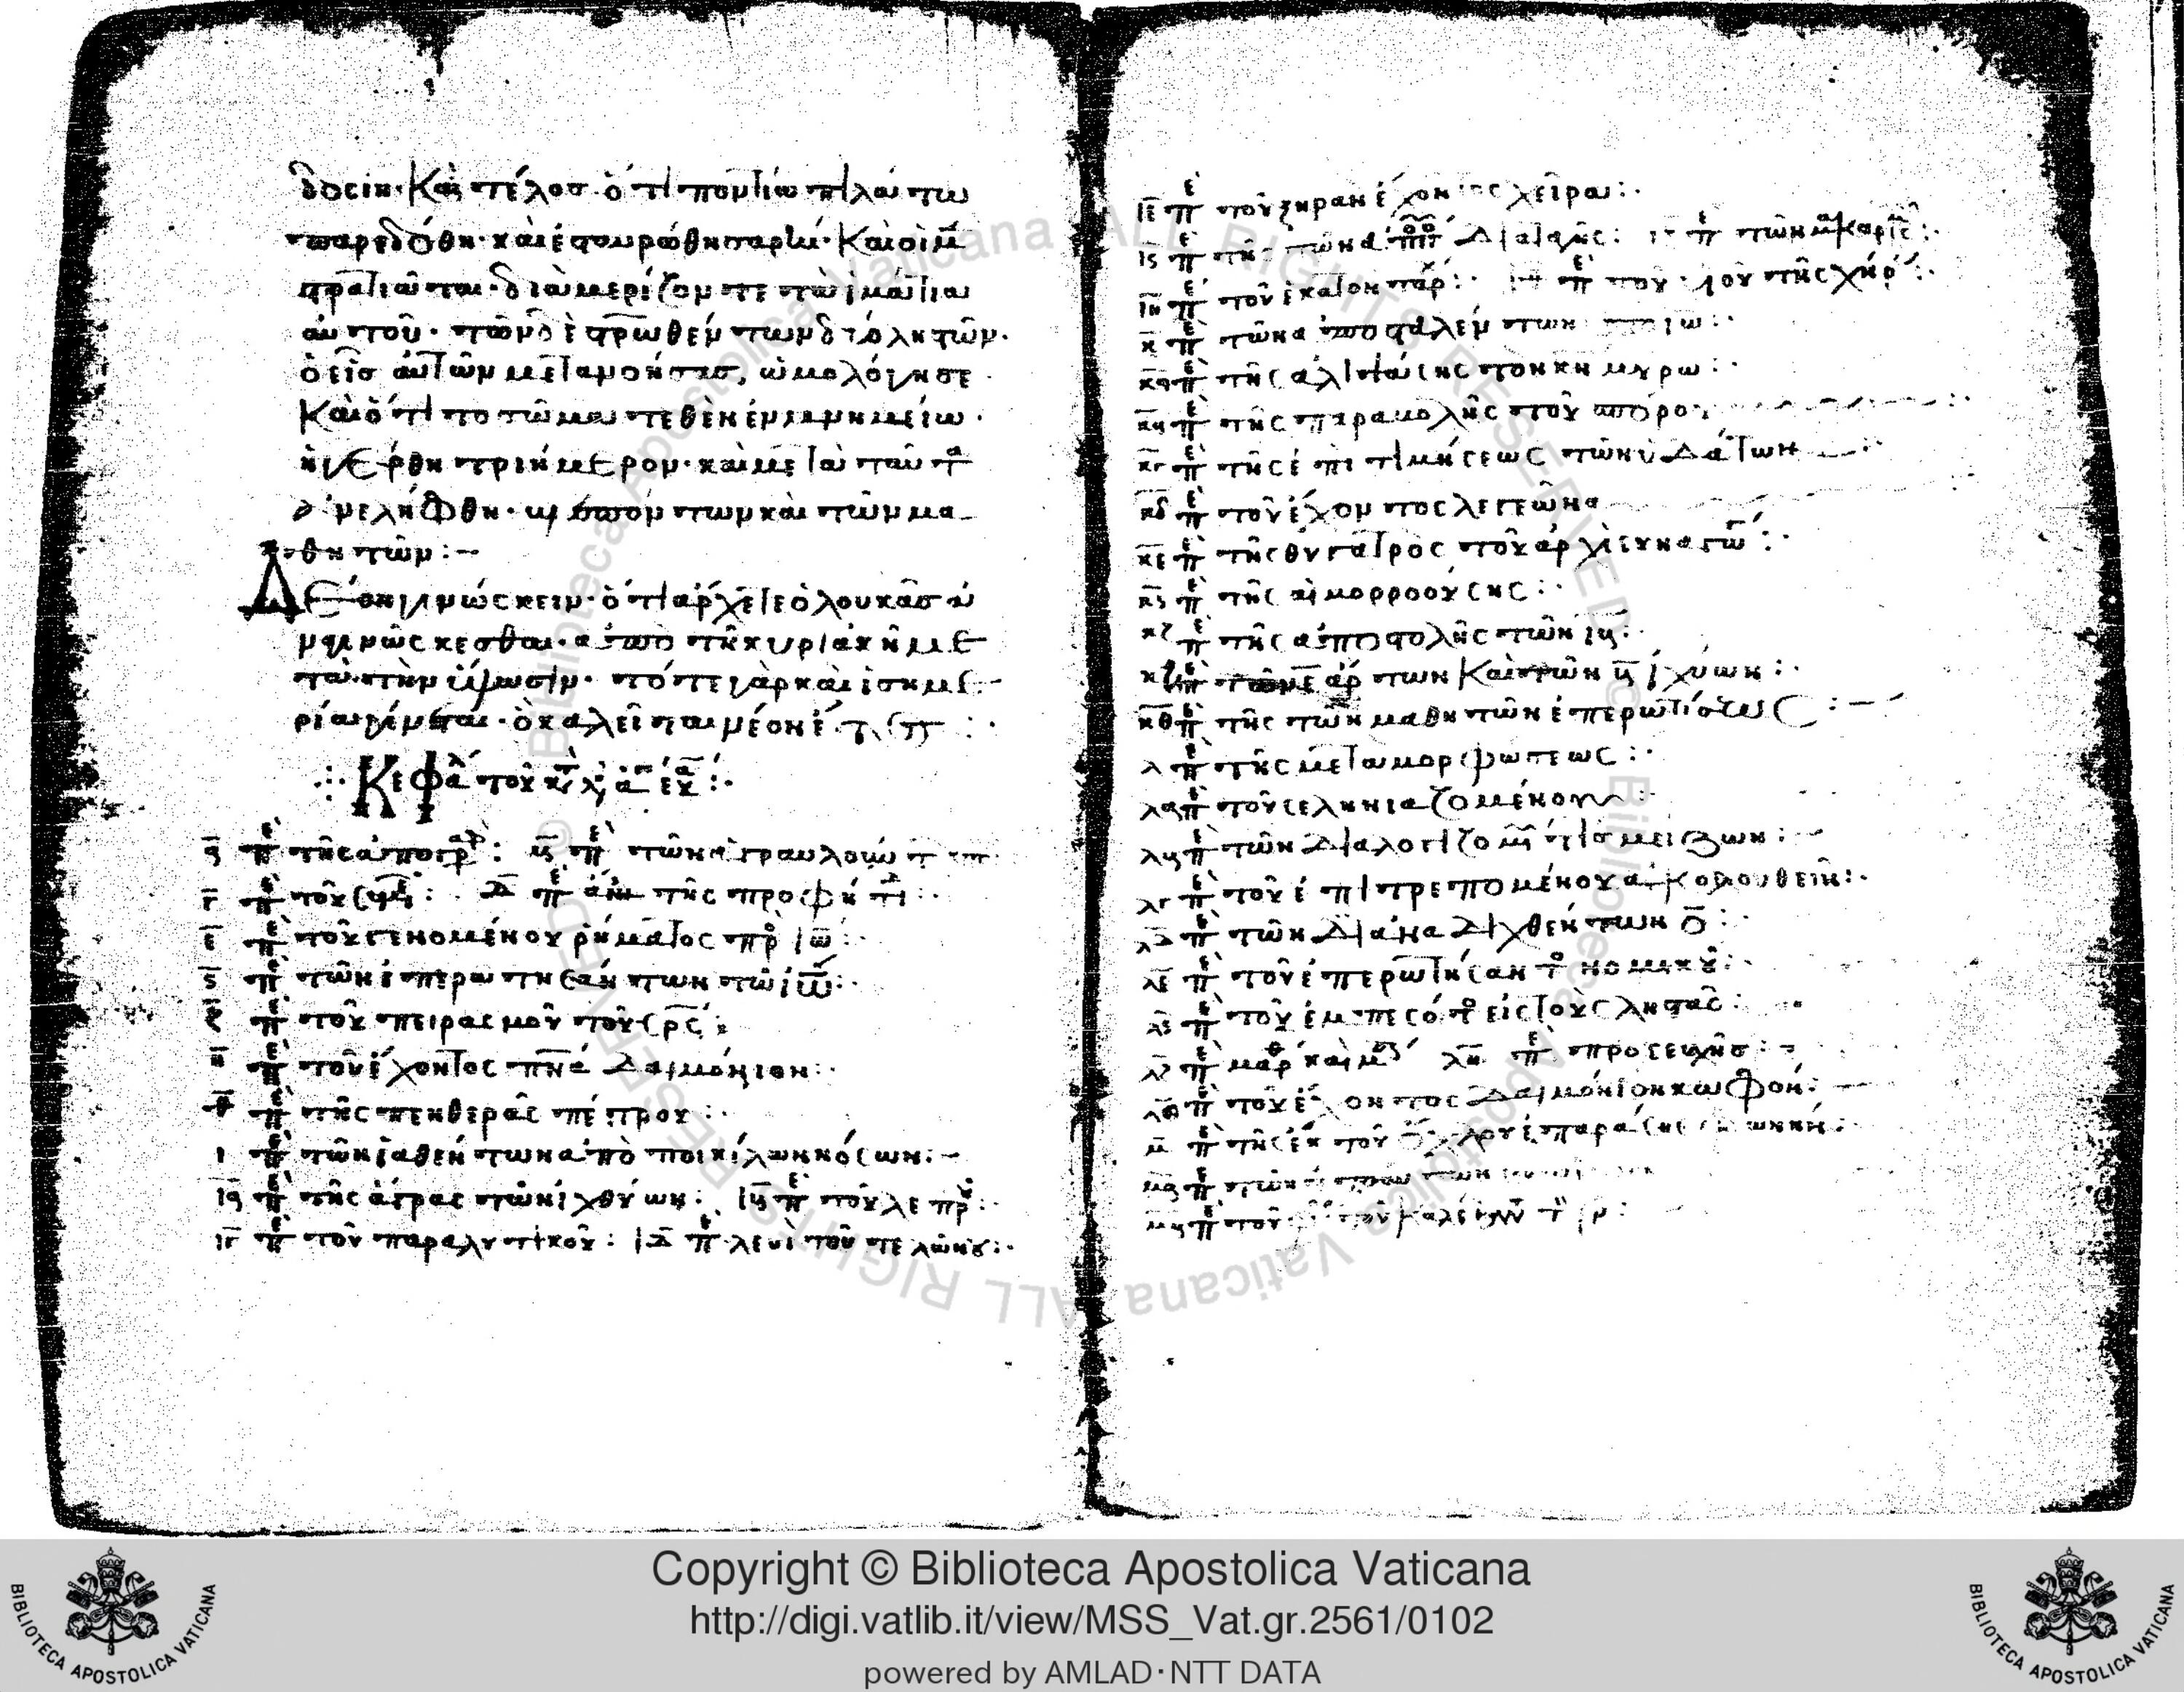 δοσιν· Καὶ τέλος ὅτι ποντίω πιλάτω
παρεδόθη· καὶ ἐσταυρώθη σαρκί· Καὶ οἱ
στρατιῶται διαμερίζονται τὰ ἱμάτια
αὐτοῦ· τῶν δὲ σταυρωθέντων δύο ληστῶν·
ὁ εἷς αὐτῶν μετανοήσας, ὡμολόγησε·
Καὶ ὅτι τὸ σῶμα τεθὲν ἐν μνημείω·
ἠγέρθη τριήμερον· καὶ μετὰ ταῦτα
ἀνελήφθη· βλεπόντων καὶ τῶν μα-
θητῶν:–
Δέον γινώσκειν· ὅτι ἄρχεται ὁ λουκᾶς ἀ
ναγινώσκεσθαι· ἀπὸ τῆς κυριακῆς με
τὰ τὴν ὕψωσιν· τότε γὰρ καὶ ἰσημε-
ρία γίνεται· ὃ καλεῖται νέον ἔτος
Κεφαλ τοῦ κατ λκ ἁγ εὐα
α πε τῆς ἀπογρ: β πε τῶν ἀγραυλούντων
γ πε τοῦ συμε: δ πε ἀν τῆς προφητι:
ε πε τοῦ γενομένου ῥήματος πρὸ ἰω:
ς πε τῶν ἐπερωτησάντων τὸν ἰω:
ζ πε τοῦ πειρασμοῦ τοῦ σρς:
η πε τοῦ ἔχοντος πνα δαιμόνιον:
θ πε τῆς πενθερᾶς πέτρου:
ι πε τῶν ἰαθέντων ἀπὸ ποικίλων νόσων:–
ια πε τῆς ἄγρας τῶν ἰχθύων: ιβ πε τοῦ λεπρ:
ιγ πε τοῦ παραλυτικοῦ: ιδ πε λευὶ τοῦ τελώνου:
ιε πε τοῦ ξηρὰν ἔχοντος χεῖρα:
ις πε τῆς τῶν ἀπο διαταγῆς: ιζ πε τῶν μακαρισ:
ιη πε τοῦ ἑκατοντάρχ: ιθ πε τοῦ υἱοῦ τῆς χήρ:
κ πε τῶν ἀποσταλέντων ἰω:
κα πε τῆς ἀλειψάσης τὸν κν μύρω:
κβ πε τῆς παραβολῆς τοῦ σπόρου
κγ πε τῆς ἐπιτιμήσεως τῶν ὑδάτων
κδ πε τοῦ ἔχοντος λεγεῶνα
κε πε τῆς θυγατρὸς τοῦ ἀρχισυναγω:
κς πε τῆς αἱμορροούσης:
κζ πε τῆς ἀποστολῆς τῶν ιβ:
κη πε τῶν ε ἄρτων Καὶ τῶν β ἰχθύων:
κθ πε τῆς τῶν μαθητῶν ἐπερωτήσεως:–
λ πε τῆς μεταμορφώσεως:
λα πε τοῦ σεληνιαζομένου:
λβ πε τῶν διαλογιζομ τίς μείζων:
λγ πε τοῦ ἐπιτρεπομένου ἀκολουθεῖν:
λδ πε τῶν ἀναδειχθέντων ο:
λε πε τοῦ ἐπερωτήσαντ νομικοῦ:
λς πε τοῦ ἐμπεσόντ εἰς τοὺς ληστάς:
λζ πε μάρθ καὶ μ λη πε προσευχῆς:
λθ πε τοῦ ἔχοντος δαιμόνιον κωφόν:
μ πε τῆς ἐκ τοῦ ὄχλου ἐπαράσης φωνήν:
μα πε τῶν
μβ πε τοῦ
Copyright © Biblioteca Apostolica Vaticana
http://digi.vatlib.it/view/MSS_Vat.gr.2561/0102
powered by AMLAD·NTT DATA